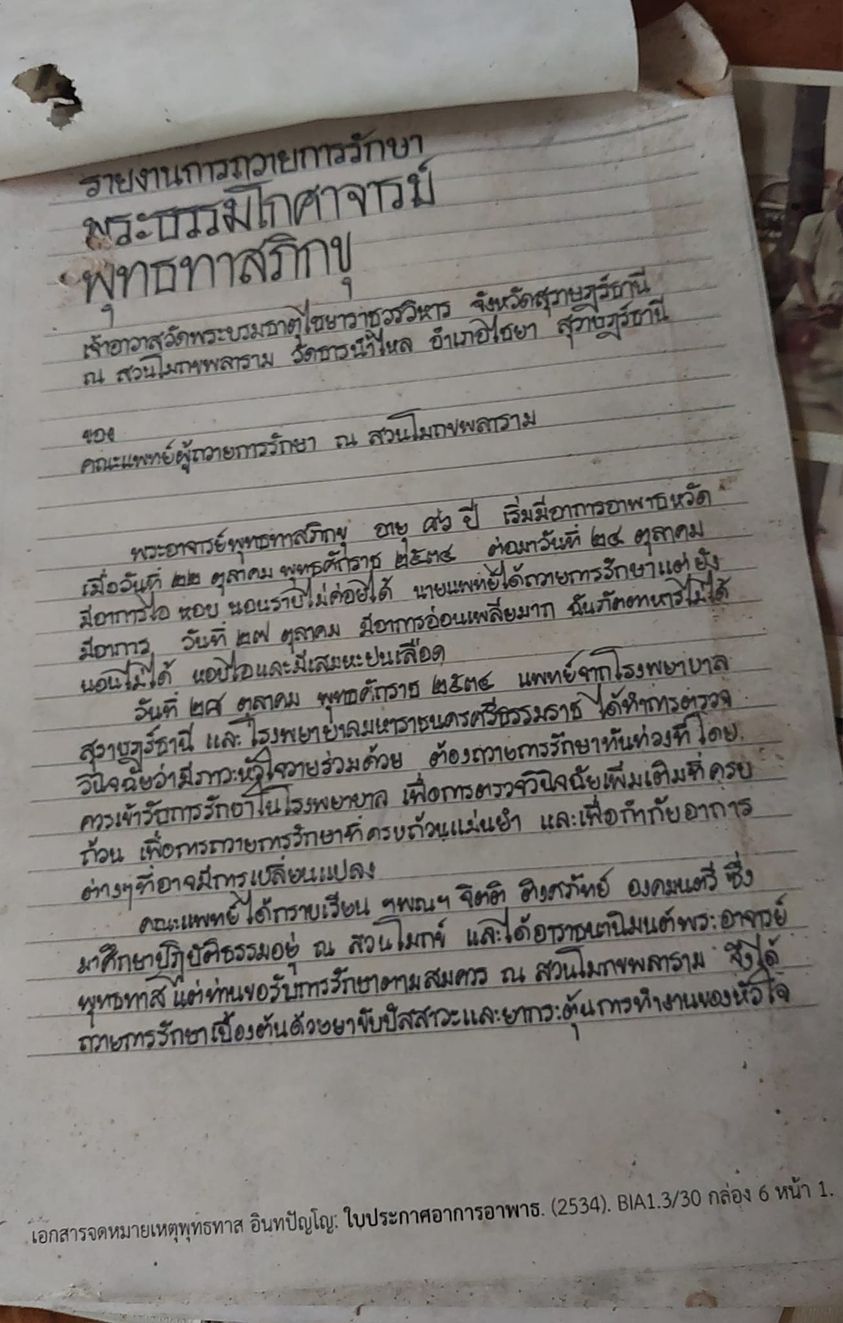 รายงานการถวายการรักษา
พระธรรมโกศาจารย์
พุทธทาสภิกขุ
เจ้าอาวาสวัดพระบรมธาตุไชยาราชวรวิหาร จังหวัดสุราษฎร์ธานี
ณ สวนโมกขพลาราม วัดธารน้ำไหล อำเภอไชยา สุราษฎร์ธานี
ของ
คณะแพทย์ผู้ถวายการรักษา ณ สวนโมกขพลาราม
พระอาจารย์พุทธทาสภิกขุ อายุ ๘๖ ปี เริ่มมีอาการอาพาธหวัด
เมื่อวันที่ ๒๒ ตุลาคม พุทธศักราช ๒๕๓๔ ต่อมาวันที่ ๒๔ ตุลาคม
มีอาการไอ หอบ นอนราบไม่ค่อยได้ นายแพทย์ได้ถวายการรักษาแต่ยัง
มีอาการ วันที่ ๒๗ ตุลาคม มีอาการอ่อนเพลียมาก ฉันภัตตาหารไม่ได้
นอนไม่ได้ หอบไอและมีเสมหะปนเลือด
วันที่ ๒๘ ตุลาคม พุทธศักราช ๒๕๓๔ แพทย์จากโรงพยาบาล
สุราษฎร์ธานี และโรงพยาบาลมหาราชนครศรีธรรมราช ได้ทำการตรวจ
วินิจฉัยว่ามีภาวะหัวใจวายร่วมด้วย ต้องถวายการรักษาทันท่วงที โดย
ควรเข้ารับการรักษาในโรงพยาบาล เพื่อการตรวจวินิจฉัยเพิ่มเติมที่ครบ
ถ้วน เพื่อการถวายการรักษาที่ครบถ้วนแม่นยำ และเพื่อกำกับอาการ
ต่างๆที่อาจมีการเปลี่ยนแปลง
คณะแพทย์ได้กราบเรียน ฯพณฯ จิตติ ติงศภัทิย์ องคมนตรี ซึ่ง
มาศึกษาปฏิบัติธรรมอยู่ ณ สวนโมกข์ และได้อาราธนานิมนต์พระอาจารย์
พุทธทาส แต่ท่านขอรับการรักษาตามสมควร ณ สวนโมกขพลาราม จึงได้
ถวายการรักษาเบื้องต้นด้วยยาขับปัสสาวะและยากระตุ้นการทำงานของหัวใจ
เอกสารจดหมายเหตุพุทธทาส อินทปัญโญ: ใบประกาศอาการอาพาธ. (2534). BIA1.3/30 กล่อง 6 หน้า 1.